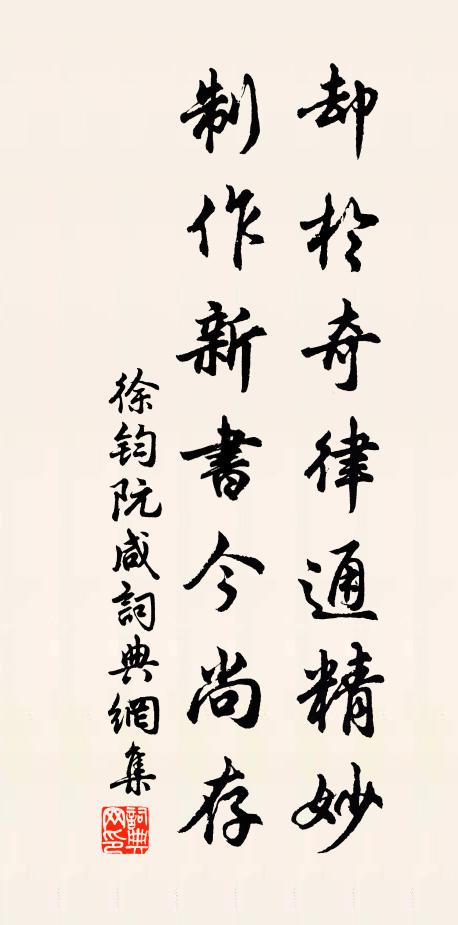 却於奇律通精妙
制作新書今尚存
徐钧阮咸詞典網集
詞典網印